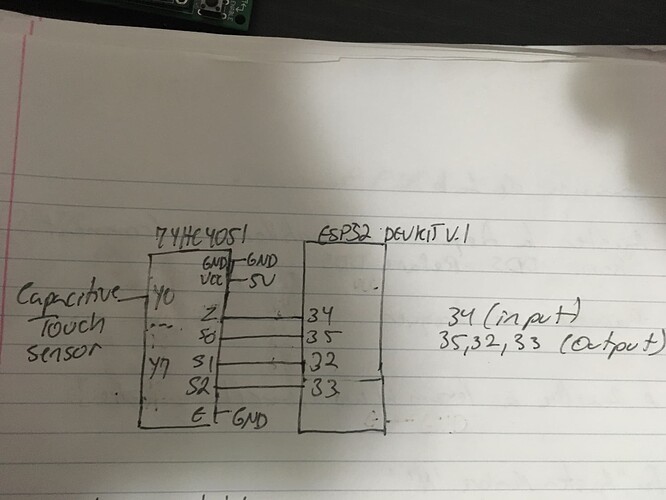 74HC4051
ESP32 DEVKIT V.1
GND GND
VCC 5V
Capacitive Y0
Touch
sensor
Z 34
S0 35
Y7 S1 32
S2 33
E GND
34 (input)
35,32,33 (output)